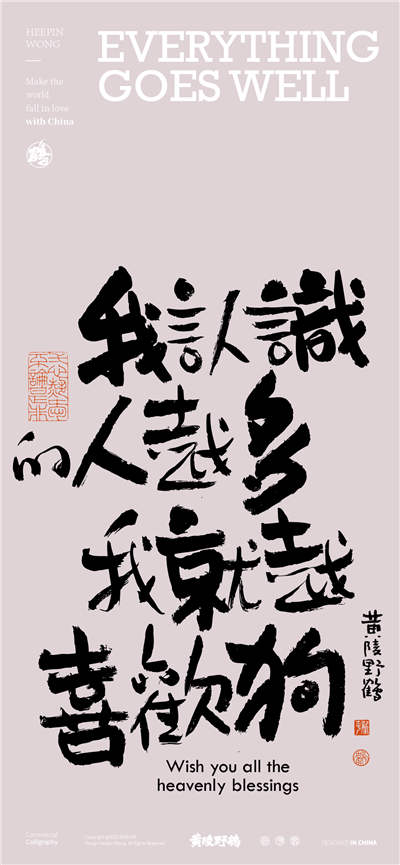 HEEPIN
WONG
EVERYTHING
GOES WELL
Make the
world
fall in love
with China
我認人識
的人越多
我就越
喜歡狗
黃陵野鶴
Wish you all the
heavenly blessings
Commercial
Calligraphy
黃陵野鶴
DESIGNED IN CHINA